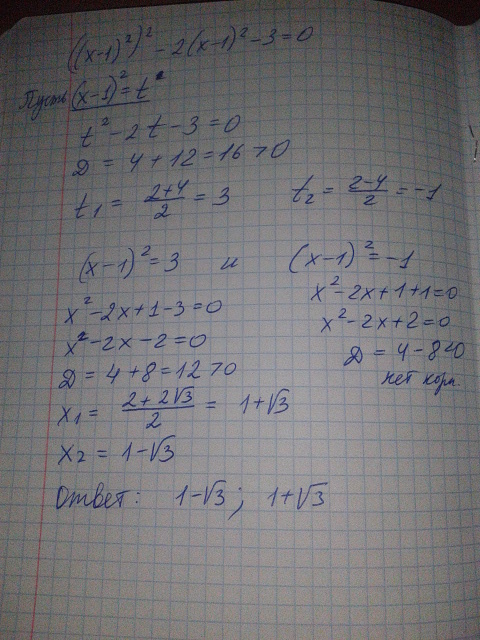 ((x-1)²)² - 2(x-1)² - 3 = 0
Пусть (x-1)² = t
t² - 2t - 3 = 0
Д = 4 + 12 = 16 > 0
t₁ = (2+4)/2 = 3    t₂ = (2-4)/2 = -1
(x-1)² = 3    и    (x-1)² = -1
x² - 2x + 1 - 3 = 0    x² - 2x + 1 + 1 = 0
x² - 2x - 2 = 0    x² - 2x + 2 = 0
Д = 4 + 8 = 12 > 0    Д = 4 - 8 < 0
нет корн.
x₁ = (2+2√3)/2 = 1+√3
x₂ = 1-√3
Ответ: 1-√3; 1+√3